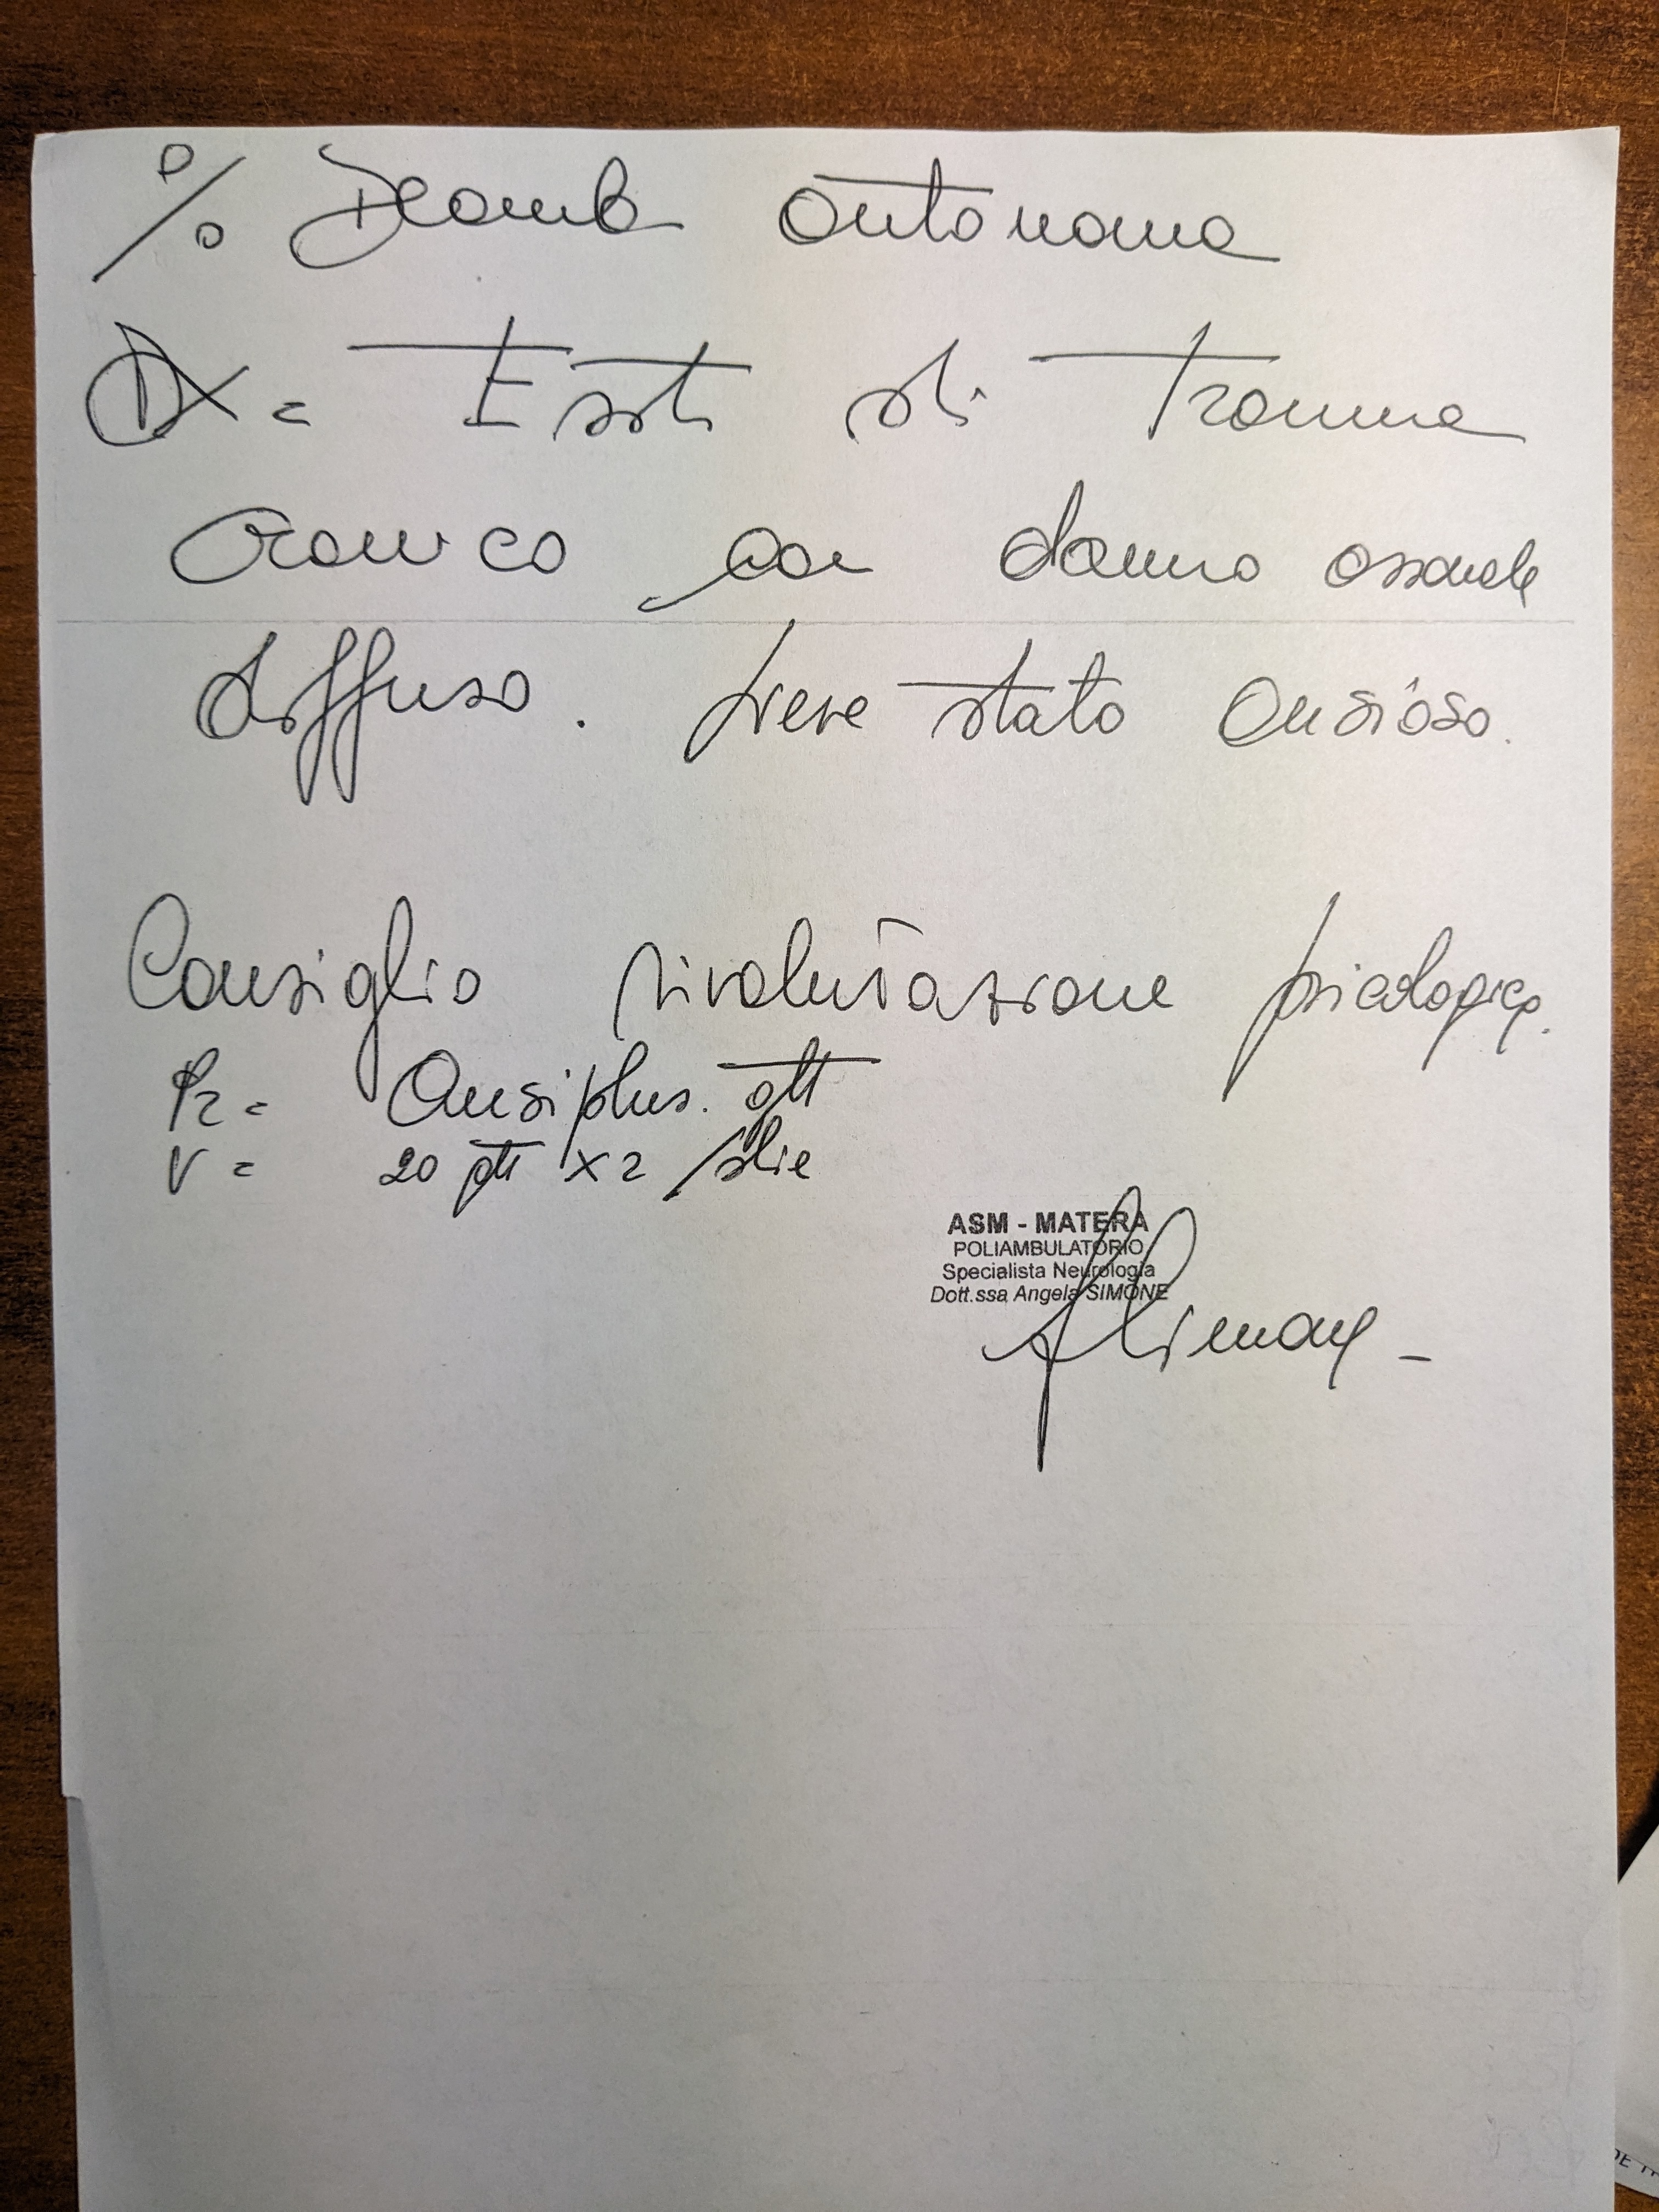 % Deamb autonoma
DX = Esiti di Trauma
cranico con danno assonale
diffuso. lieve stato ansioso.
Consiglio rivalutazione psicologica.
Pr = Ansiplus. gtt
V = 20 gtt x 2 / die
ASM - MATERA
POLIAMBULATORIO
Specialista Neurologia
Dott.ssa Angela SIMONE
ASimone